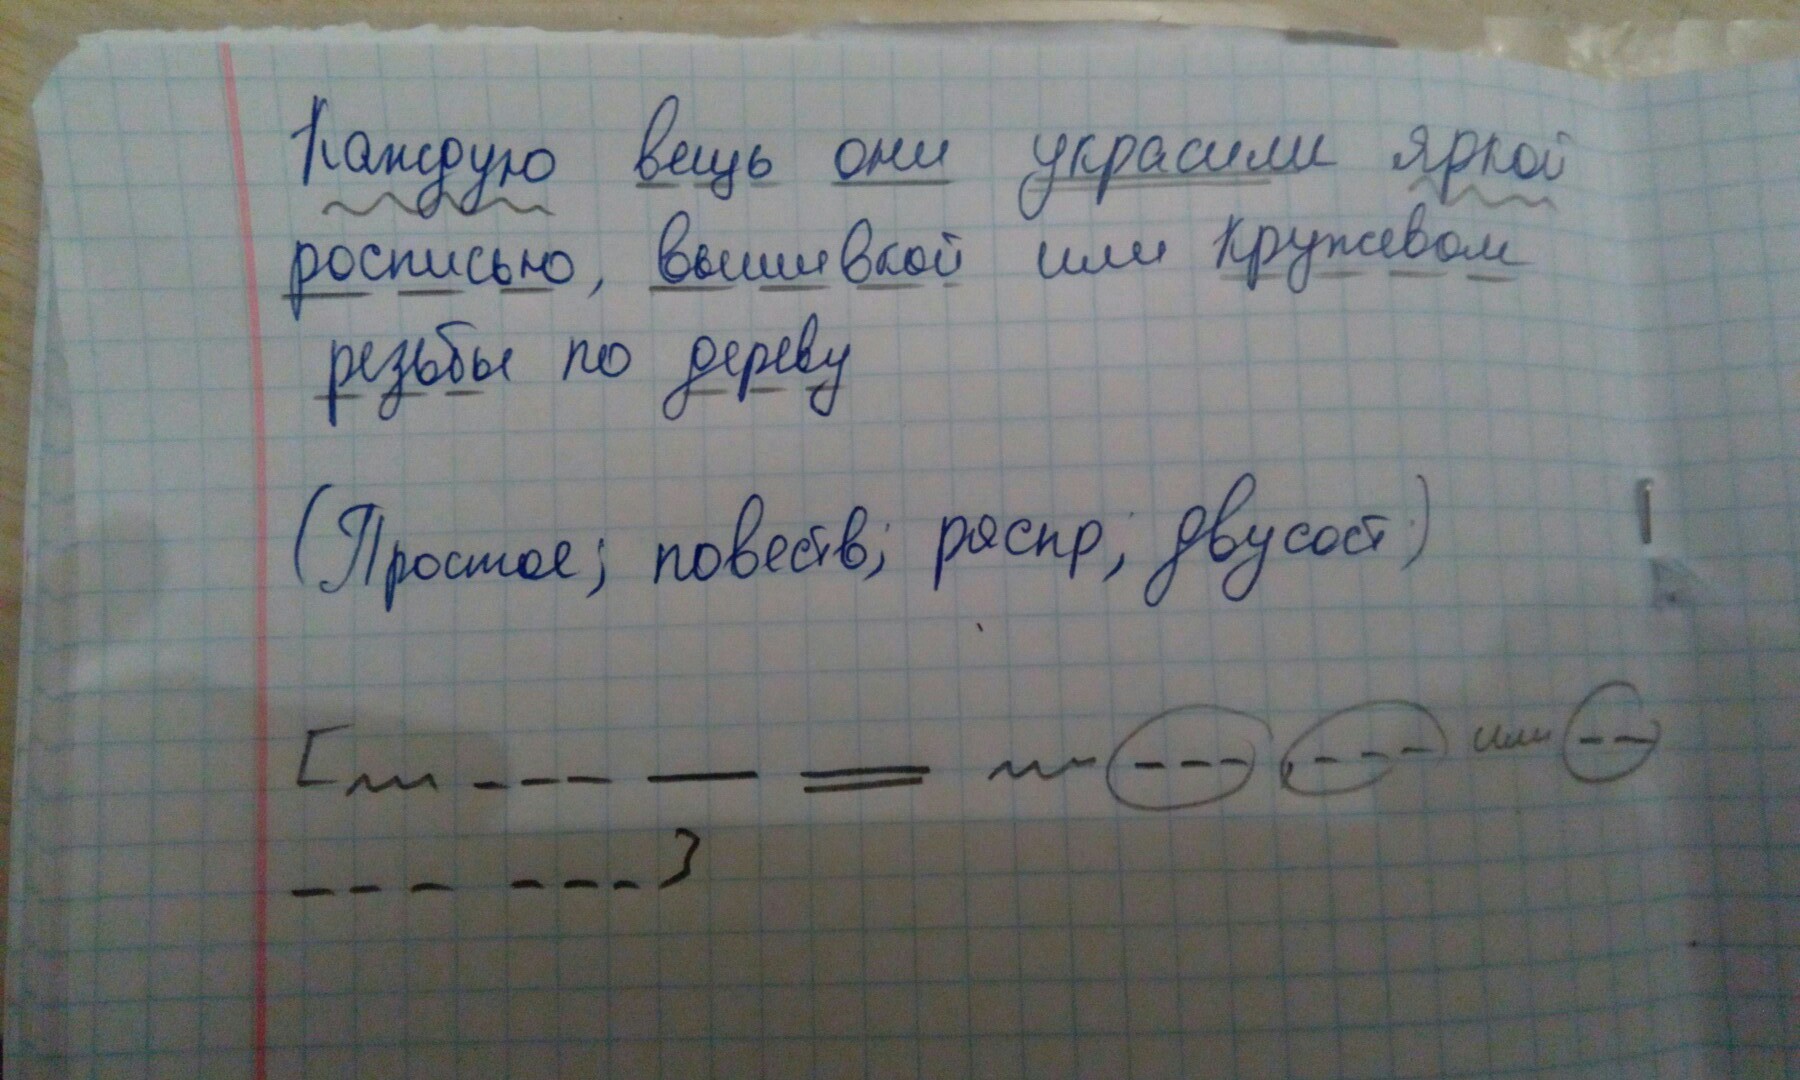 Каждую вещь они украсили яркой
росписью, вышивкой или кружевом
резьбы по дереву
(Простое; повеств; распр; двусост)
[ или
]